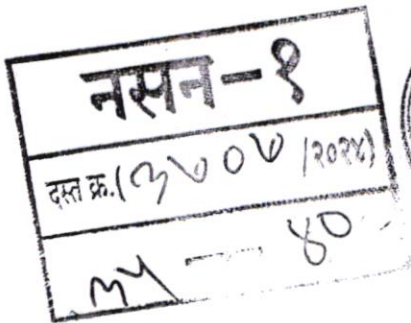 नसन-१
दस्त क्र.(३७०७ /२०२४)
३५ — ४०